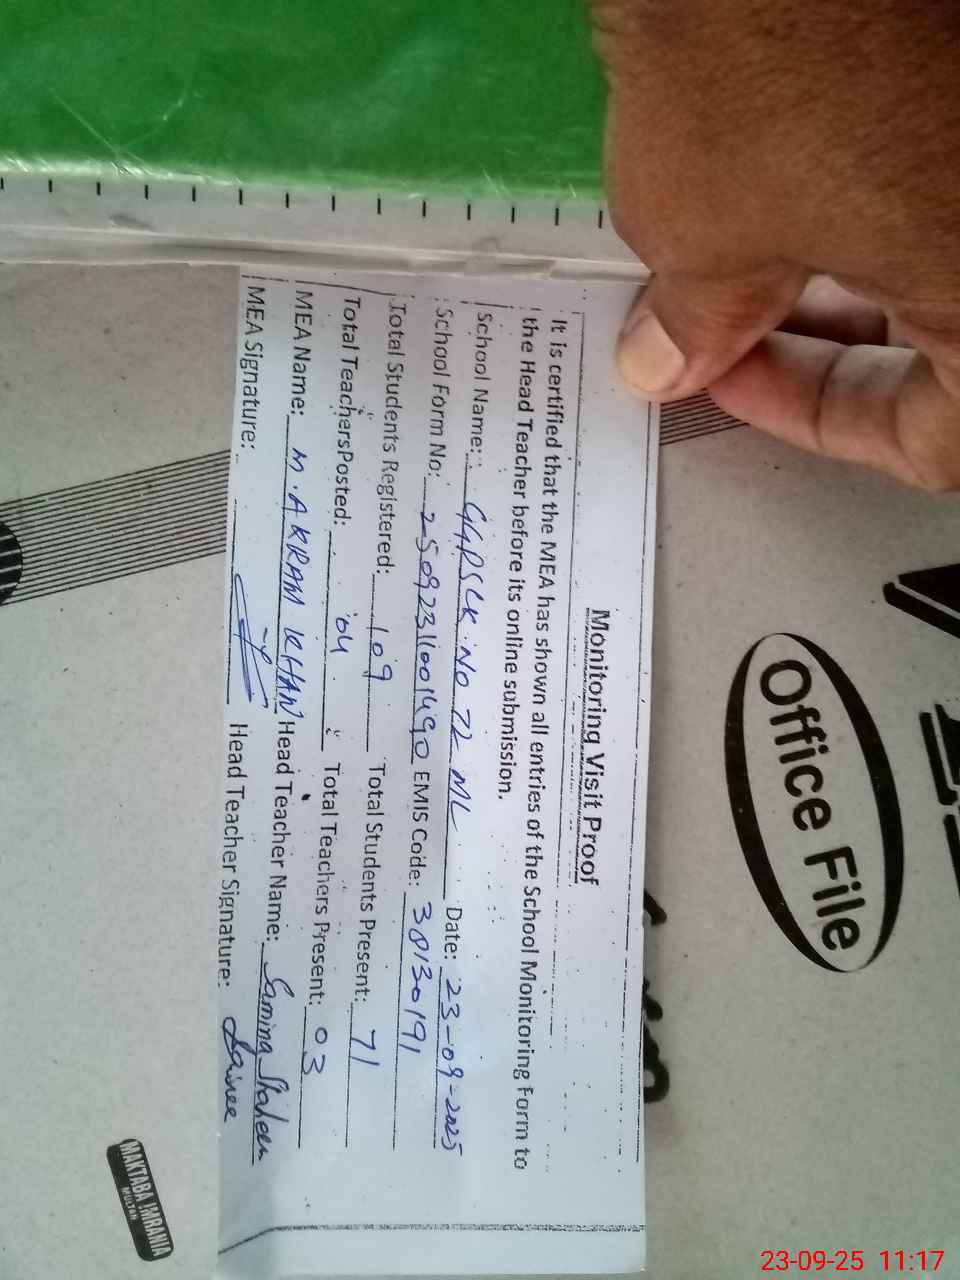 Monitoring Visit Proof
It is certified that the MEA has shown all entries of the School Monitoring Form to
the Head Teacher before its online submission.
School Name: GGPSCK No 72 ML Date: 23-09-2025
School Form No: 2509231001490 EMIS Code: 38130191
Total Students Registered: 109 Total Students Present: 71
Total Teachers Posted: 04 Total Teachers Present: 03
MEA Name: M. AKRAM KHAN Head Teacher Name: Samina Shaheen
MEA Signature: Head Teacher Signature:
Office File
MAKTABA IMRANIA
MULTAN
23-09-25 11:17